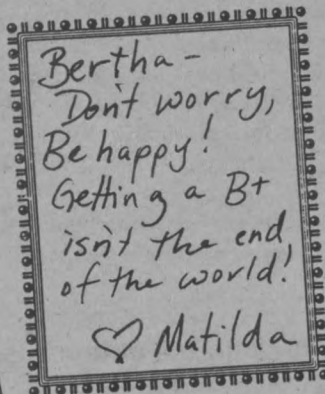 Bertha-
Don't worry,
Be happy!
Getting a B+
isn't the end
of the world!
♡ Matilda